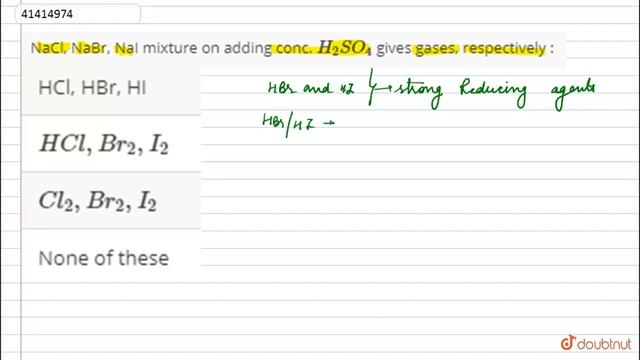 41414974
NaCl, NaBr, NaI mixture on adding conc. H₂SO₄ gives gases, respectively :
HCl, HBr, HI
HBr and HI → strong Reducing agents
HBr/HI →
HCl, Br₂, I₂
Cl₂, Br₂, I₂
None of these
doubtnut